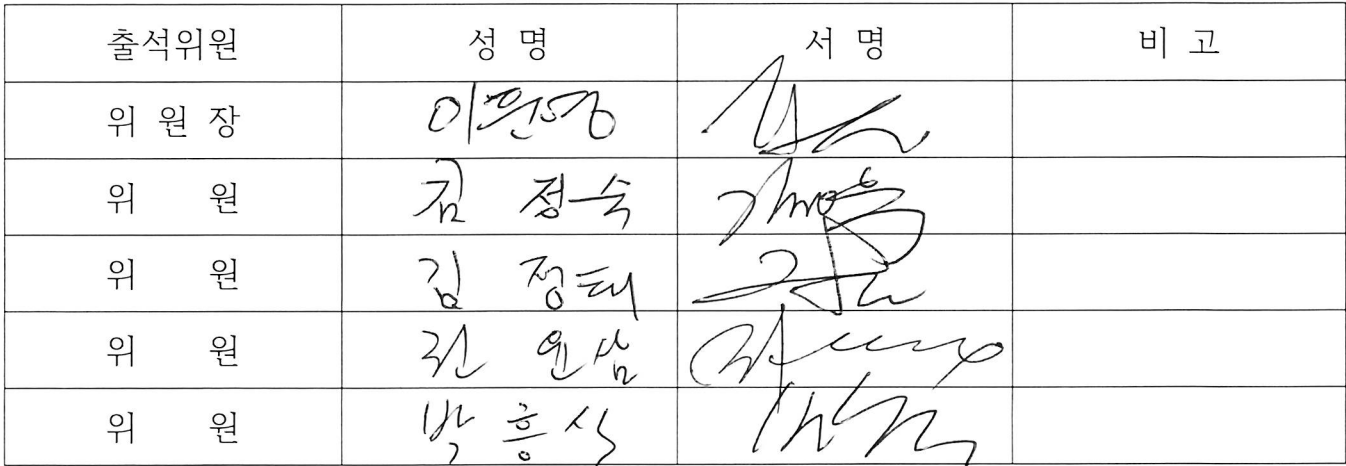 출석위원 성 명 서 명 비 고
위 원 장
위 원 김 정숙
위 원 김 정태
위 원 권 오삼
위 원 박 흥식